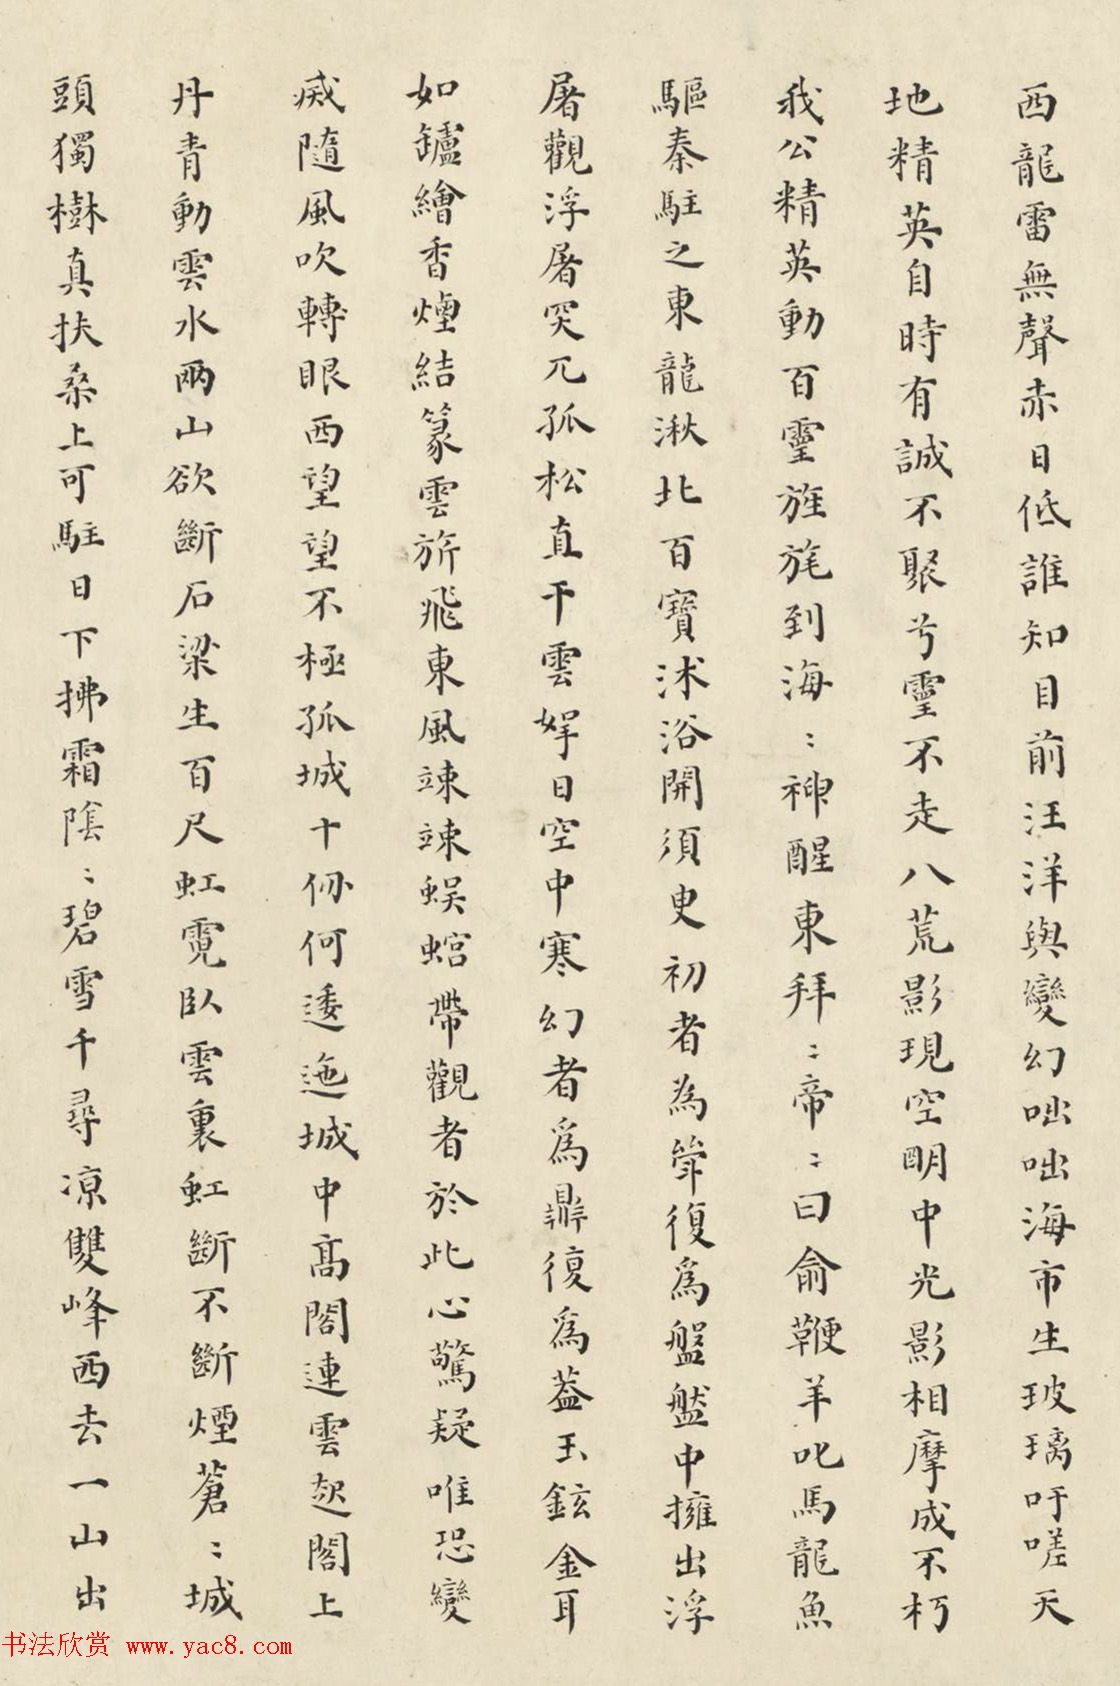 西龍雷無聲赤日低誰知目前汪洋與變幻咄咄海市生玻璃吁嗟天
地精英自時有誠不聚兮靈不走八荒影現空明中光影相摩成不朽
我公精英動百靈旌旄到海〻神醒東拜〻帝〻曰俞鞭羊叱馬龍魚
驅秦駐之東龍湫北百寶沭浴開須臾初者為斝復為盤盤中擁出浮
屠觀浮屠突兀孤松直干雲日空中寒幻者為鼎復為葢玉鉉金耳
如鑪繪香煙結篆雲旂飛東風竦竦蜈蜡帶觀者於此心驚疑唯恐變
滅隨風吹轉眼西望望不極孤城十仞何逶迤城中高閣連雲起閣上
丹青動雲水兩山欲斷石梁生百尺虹霓臥雲裏虹斷不斷煙蒼〻城
頭獨樹真扶桑上可駐日下拂霜陰〻碧雪千尋凉雙峰西去一山出
书法欣赏 www.yac8.com